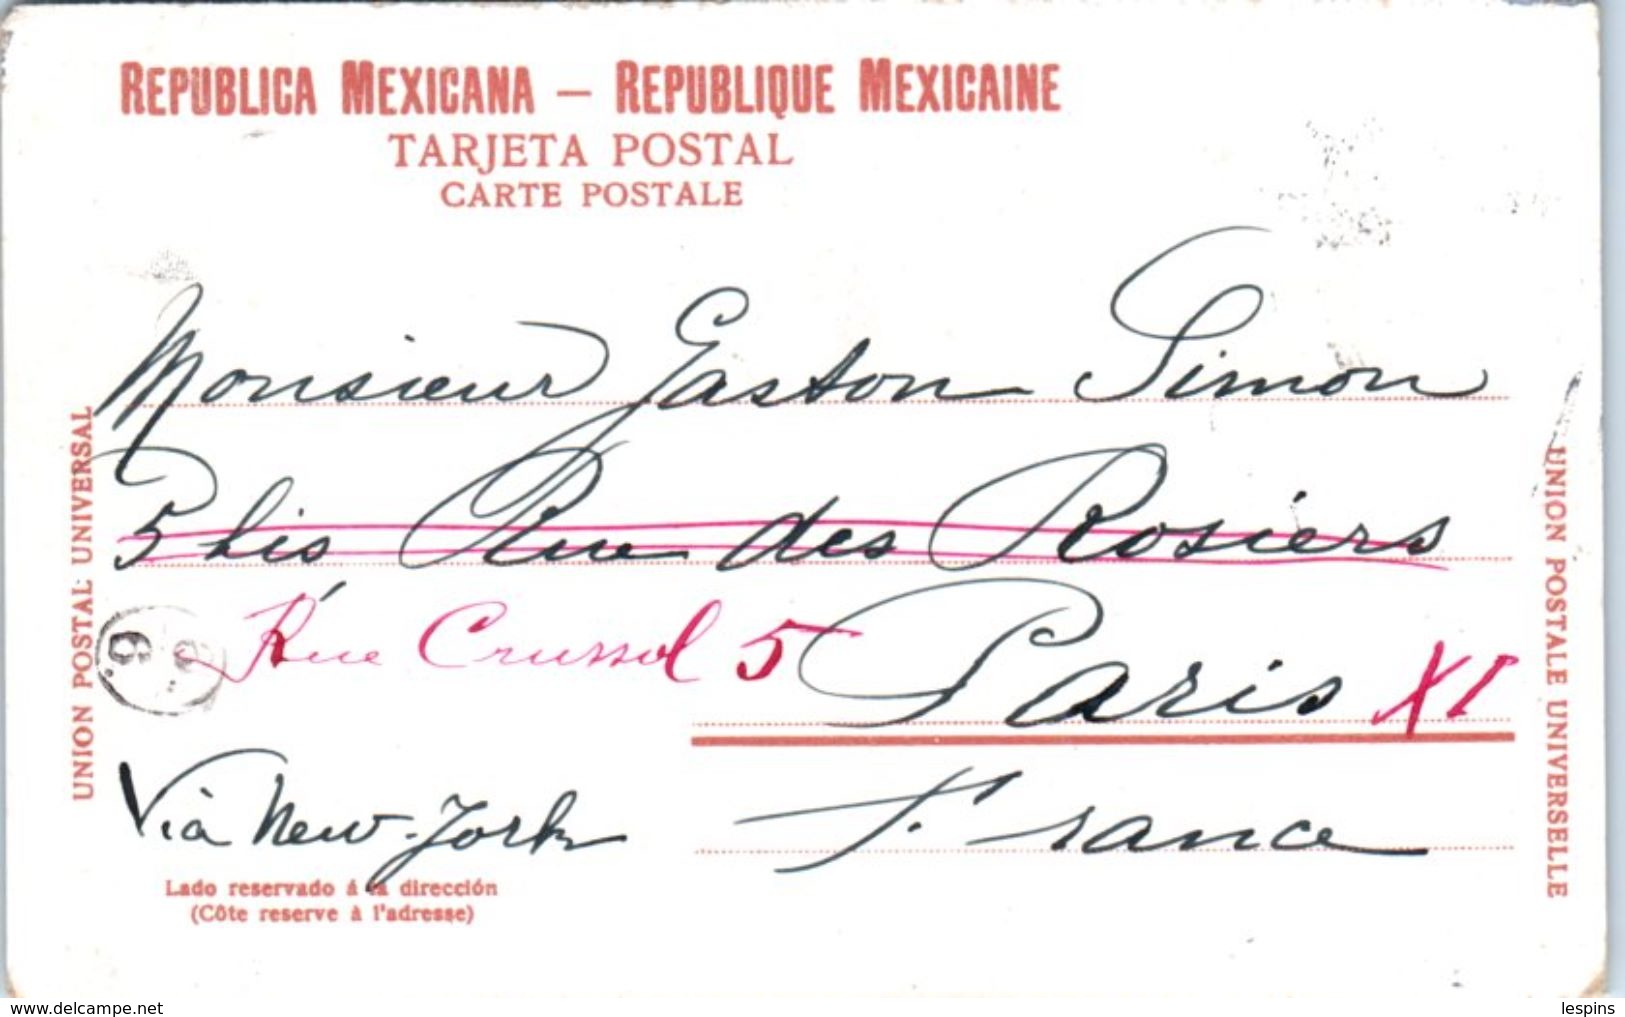 REPUBLICA MEXICANA — REPUBLIQUE MEXICAINE
TARJETA POSTAL
CARTE POSTALE
Monsieur Gaston Simon
5 bis Rue des Rosiers
Rue Crussol 5 Paris XI
Via New-York
France
Lado reservado á la dirección
(Côte reserve à l'adresse)
UNION POSTAL UNIVERSAL
UNION POSTALE UNIVERSELLE
www.delcampe.net
lespins